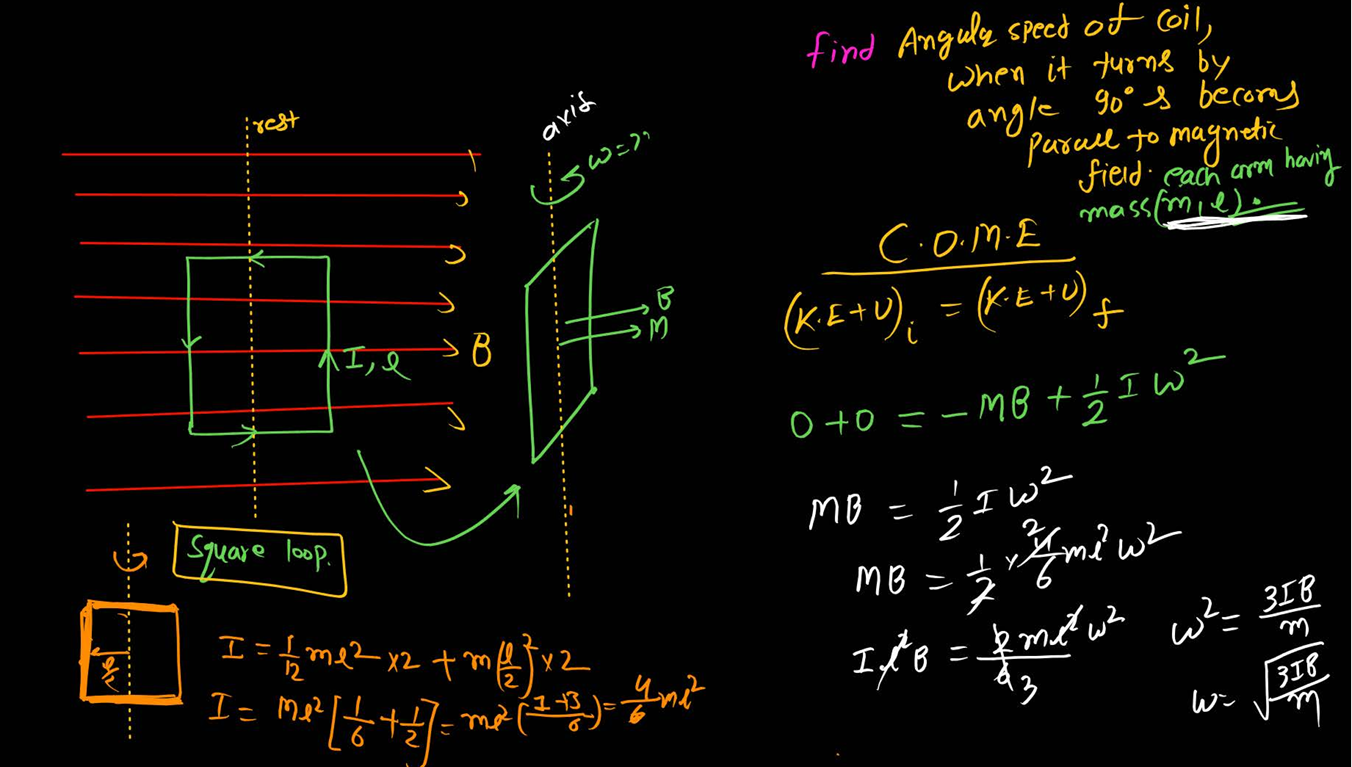 find Angular speed of coil,
when it turns by
angle 90° & becoms
parall to magnetic
field. each arm having
mass(m, l).
rest
axis
ω=??
B
M
I, l
B
Square loop.
l/2
I = 1/12 ml² ×2 + m(l/2)² ×2
I = Ml² [1/6 + 1/2] = ml² (1+3/6) = 4/6 ml²
C.O.M.E
(K.E+U)i = (K.E+U)f
0+0 = -MB + 1/2 I ω²
MB = 1/2 I ω²
MB = 1/2 × 4/6 ml² ω²
I l² B = ml² ω² / 3
ω² = 3IB/m
ω = √(3IB/m)